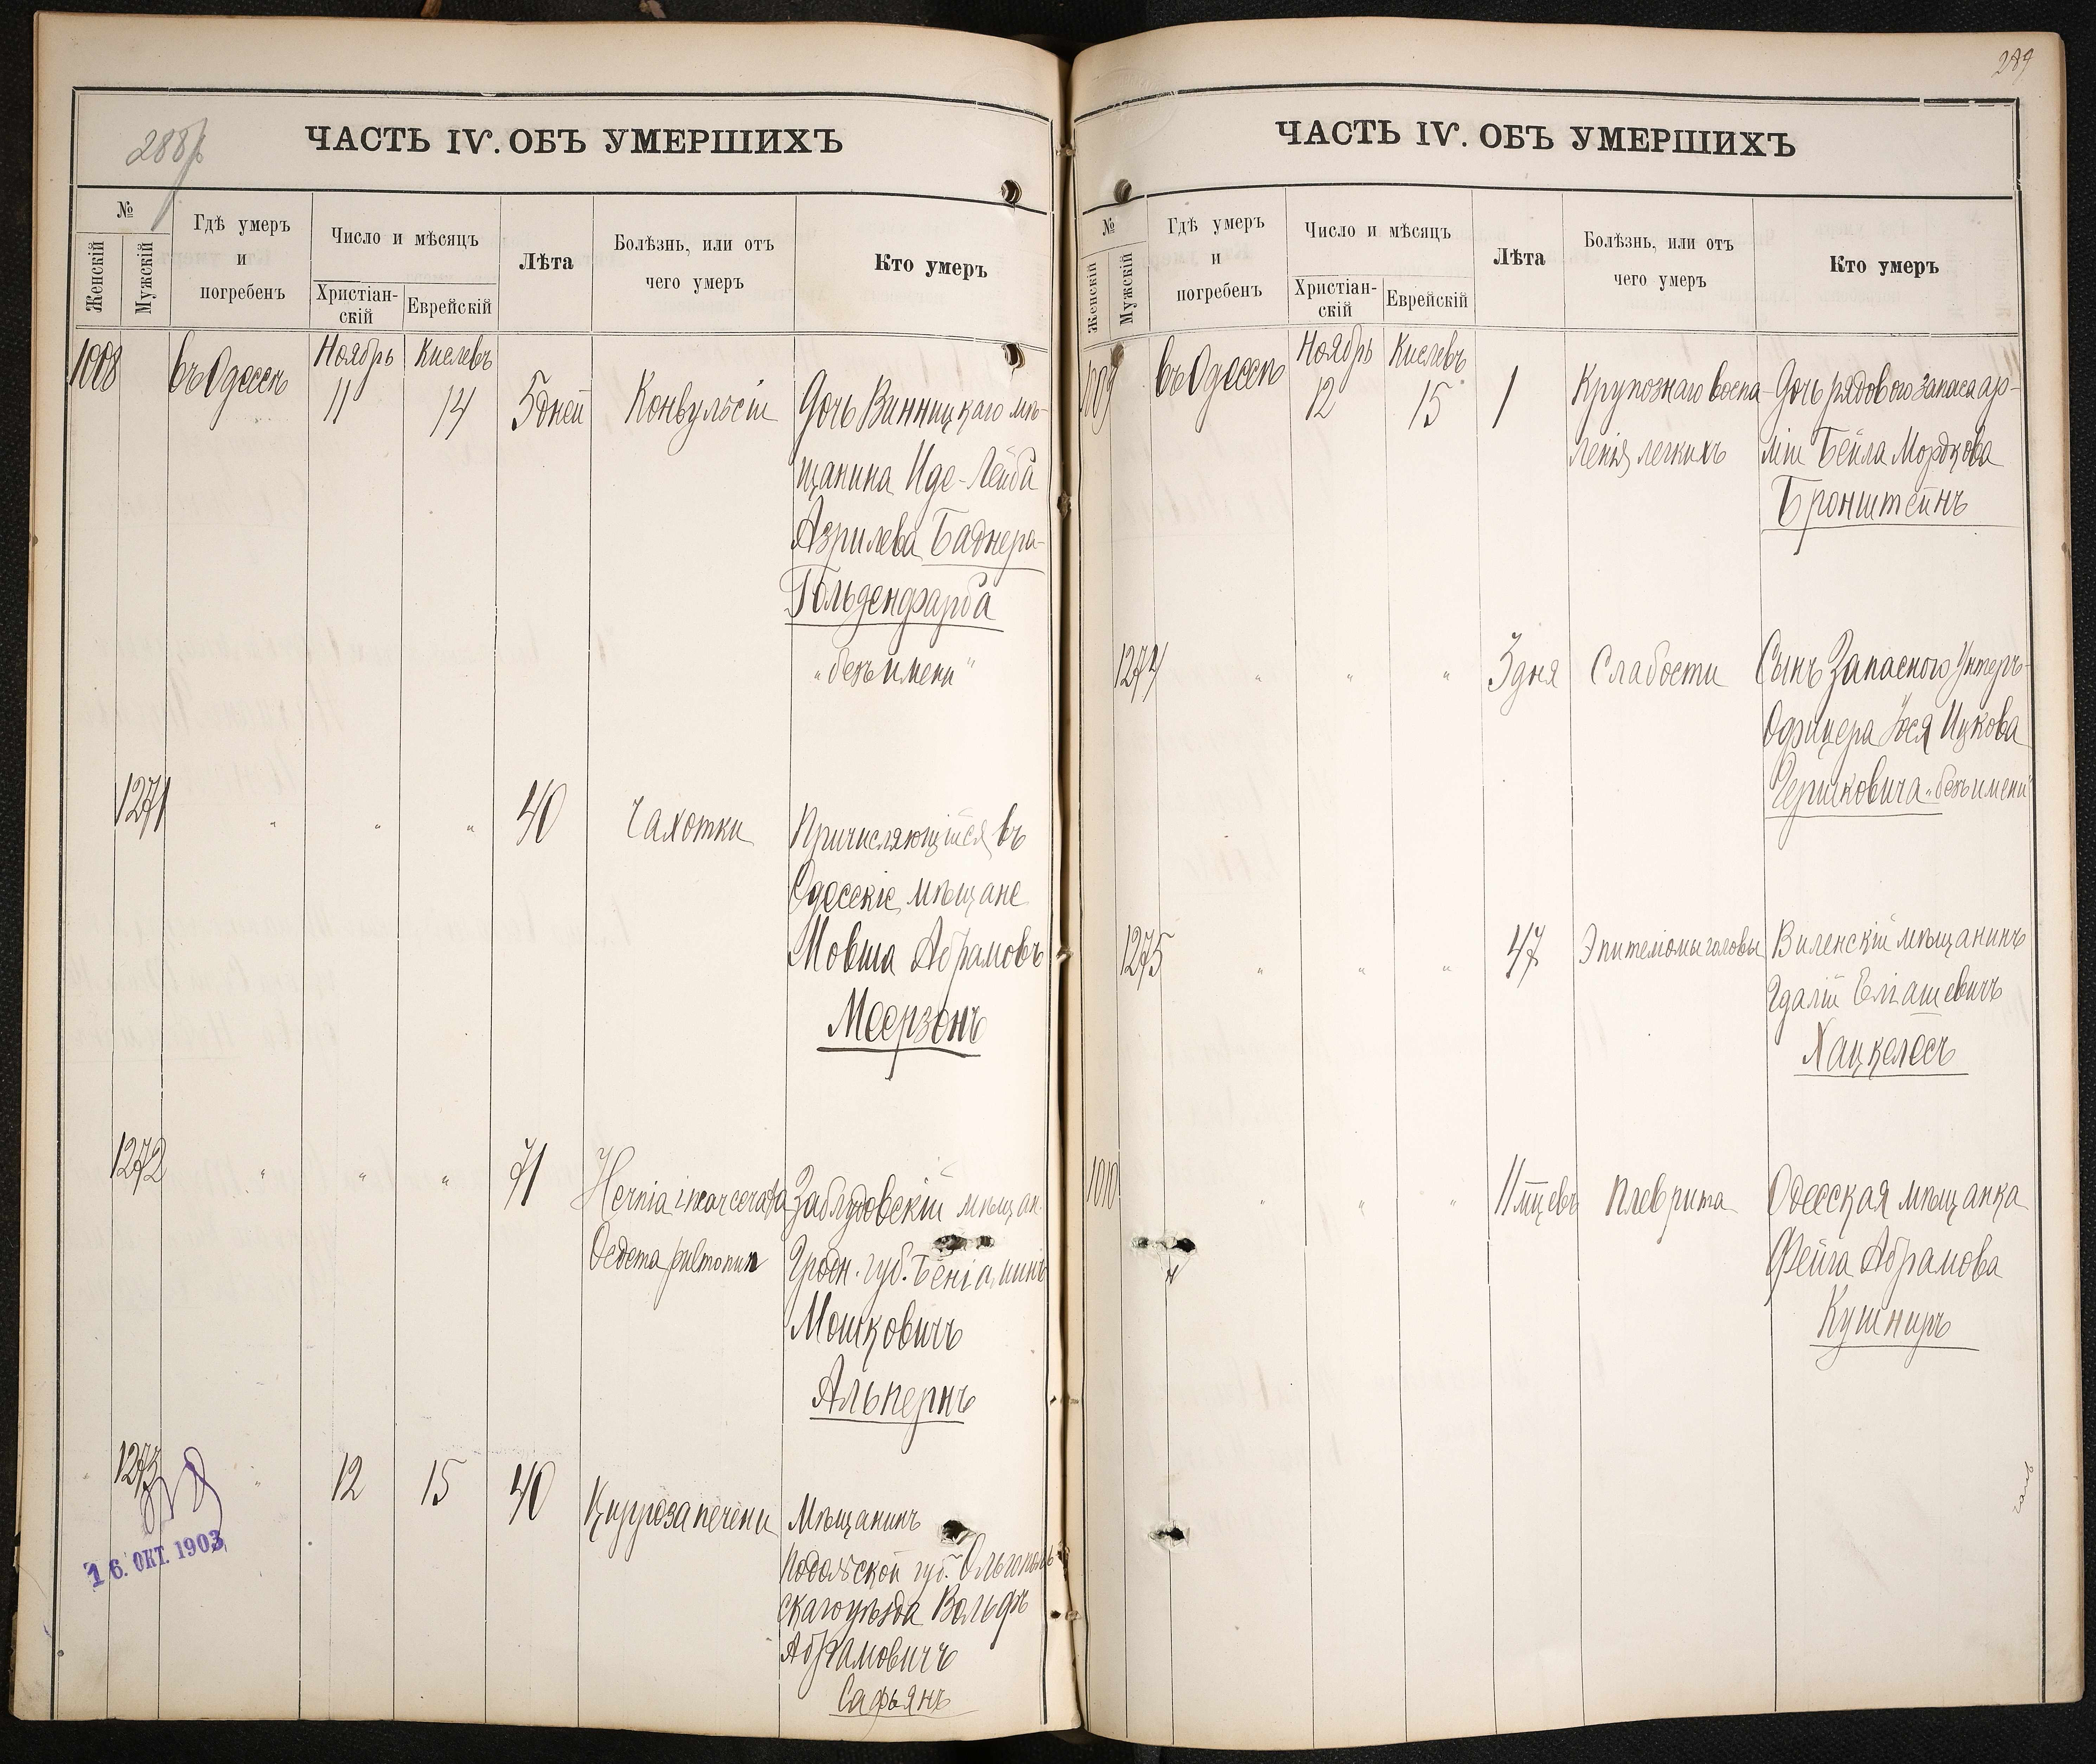 288
ЧАСТЬ IV. ОБЪ УМЕРШИХЪ
№
Женскій
Мужскій
Гдѣ умеръ
и
погребенъ
Число и мѣсяцъ
Христіан-
скій
Еврейскій
Лѣта
Болѣзнь, или отъ
чего умеръ
Кто умеръ
1008
въ Одессѣ
Ноябрь
11
Кислевъ
14
5 дней
Конвульсіи
Дочь Винницкаго мѣ-
щанина Иде-Лейба
Азрилева Баднера-
Гольденфарба
„безъ имени"
1271
"
"
"
40
Чахотки
Причисляющійся въ
Одесскіе мѣщане
Мовша Абрамовъ
Меерзонъ
1272
"
"
"
71
Hernia incarcerata
Oedema pulmonum
Заблудовскій мѣщан.
Гродн. губ. Беніаминъ
Мошковичъ
Альпернъ
1273
"
12
15
40
Цирроза печени
Мѣщанинъ
Подольской губ. Ольгополь
скаго уѣзда Вольфъ
Абрамовичъ
Сафьянъ
16. ОКТ. 1903
289
ЧАСТЬ IV. ОБЪ УМЕРШИХЪ
№
Женскій
Мужскій
Гдѣ умеръ
и
погребенъ
Число и мѣсяцъ
Христіан-
скій
Еврейскій
Лѣта
Болѣзнь, или отъ
чего умеръ
Кто умеръ
1009
въ Одессѣ
Ноябрь
12
Кислевъ
15
1
Крупознаго воспа-
ленія легкихъ
Дочь рядового запаса ар-
міи Бейла Мордкова
Бронштейнъ
1274
"
"
"
3 дня
Слабости
Сынъ Запасного Унтеръ-
Офицера Іося Ицкова
Гершковича „безъ имени"
1275
"
"
"
47
Эпителіомы головы
Виленскій мѣщанинъ
Гдалій Еліашевичъ
Хацкелесъ
1010
"
"
"
11 мѣцевъ
Плеврита
Одесская мѣщанка
Фейга Абрамова
Кушниръ